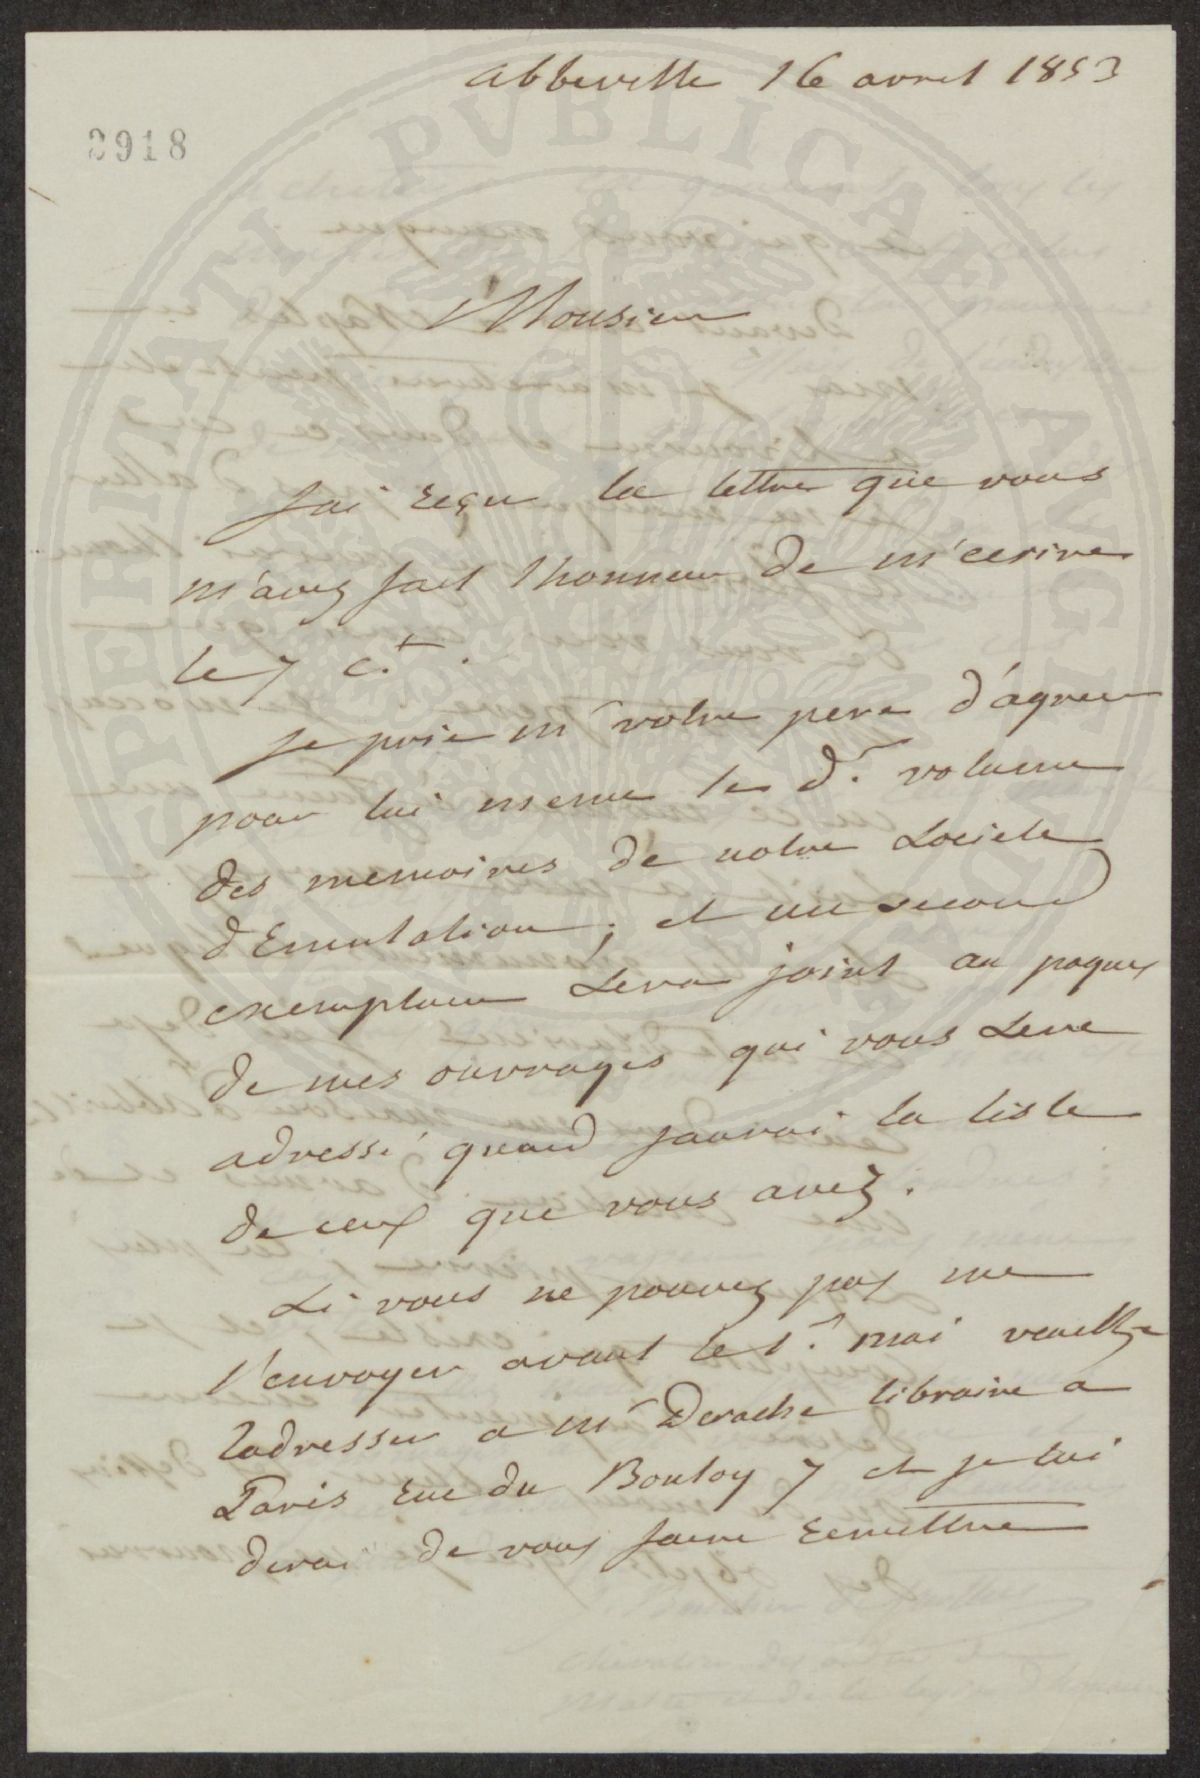 Abbeville 16 avril 1853
2918
Monsieur
Jai reçu la lettre que vous
m'avez fait lhonneur de m'ecrire
le 7 ct.
Je prie mr votre pere d'agreer
pour lui meme le dr. volume
des memoires de notre Societe
d'Emulation ; et un second
exemplaire sera joint au paquet
de mes ouvrages qui vous sera
adressé quand jaurai la liste
de ceux que vous avez.
Si vous ne pouvez pas me
l'envoyer avant le 1r. mai veuillez
ladresser a mr Derache libraire a
Paris rue du Bouloy 7 et je lui
dirai de vous faire remettre
SPERITATI PVBLICAE AVG